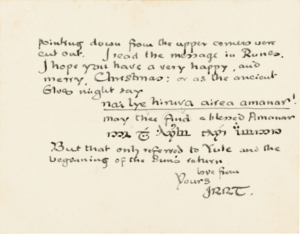 pointing down from the upper corners were
cut out. I read the message in Runes.
I hope you have a very happy, and
merry, Christmas: or as the ancient
Elves might say
nai lye hiruva airea amanar!
may thee find a blessed Amanar
But that only referred to Yule and the
beginning of the Sun's return
love from
Yours
JRRT.